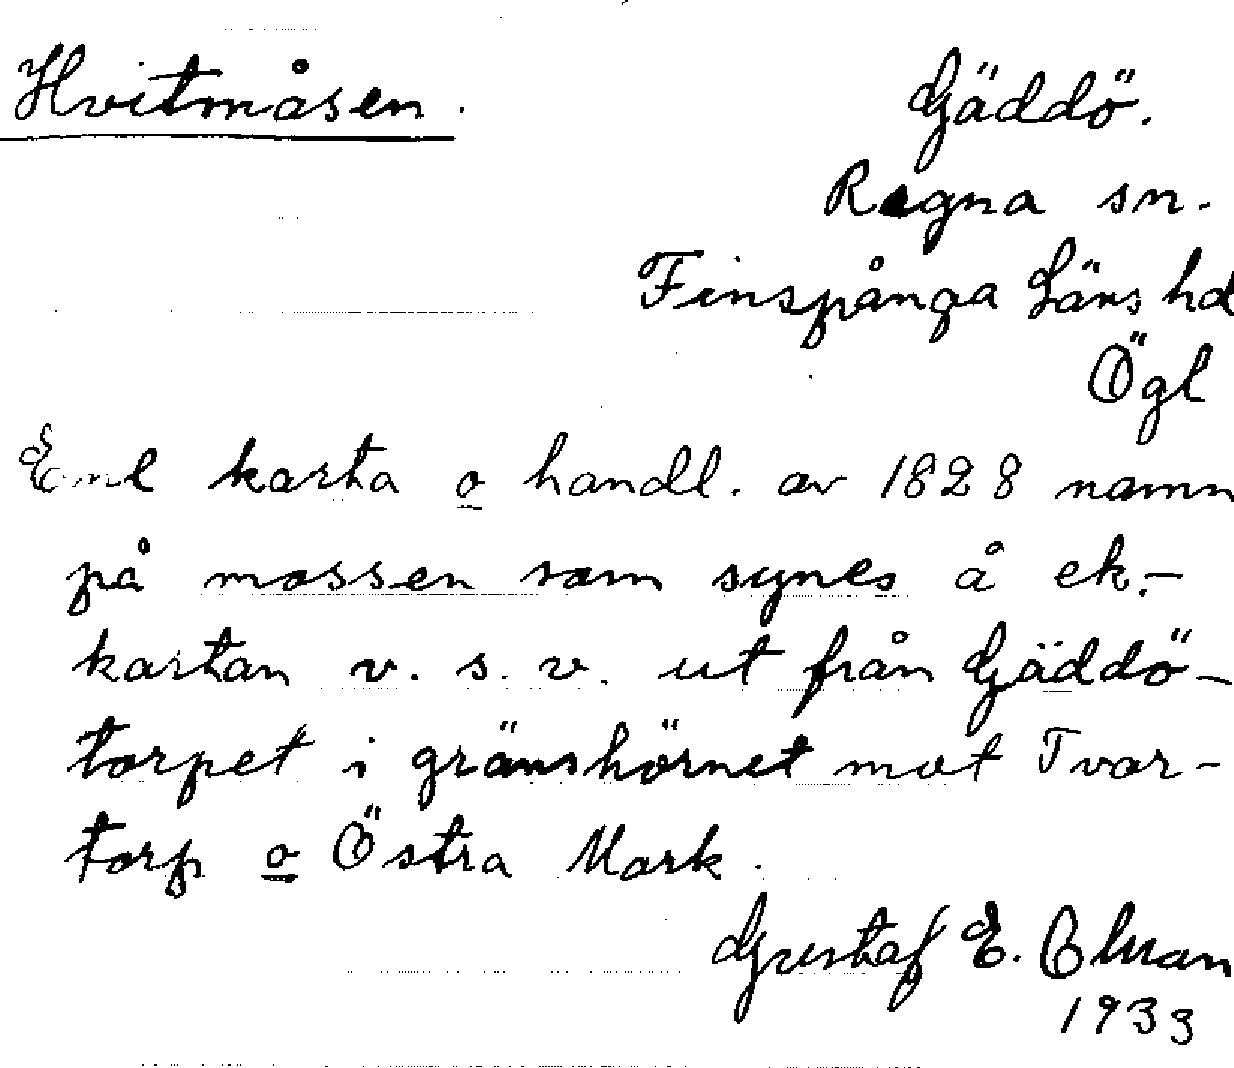 Hvitmåsen.
Gäddö.
Regna sn.
Finspånga Läns hd
Ögl
Enl karta o handl. av 1828 namn
på mossen som synes å ek.-
kartan v. s. v. ut från Gäddö-
torpet i gränshörnet mot Tvar-
torp o Östra Mark.
Gustaf E. Ohman
1933